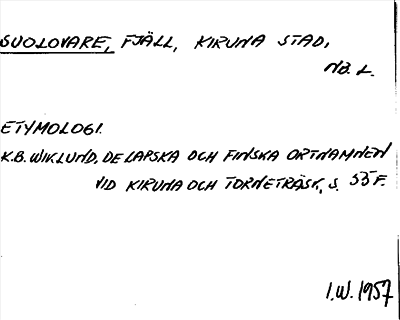 SUOLOVARE, FJÄLL, KIRUNA STAD,
NB. L.
ETYMOLOGI.
K.B. WIKLUND, DE LAPSKA OCH FINSKA ORTNAMNEN
VID KIRUNA OCH TORNETRÄSK, S. 55 F.
I.W. 1957